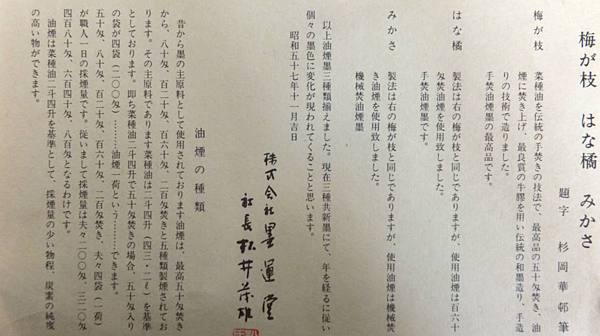 梅が枝　はな橘　みかさ
題字　杉岡華邨筆
梅が枝　菜種油を伝統の手焚きの技法で、最高品の五十匁焚き、油
煙に焚き上げ、最良質の牛膠を用い伝統の和墨造り、手造
りの技術で造りました。
手焚油煙墨の最高品です。
はな橘　製法は右の梅が枝と同じでありますが、使用油煙は百六十
匁焚油煙を使用致しました。
手焚油煙墨です。
みかさ　製法は右の梅が枝と同じでありますが、使用油煙は機械焚
き油煙を使用致しました。
機械焚油煙墨
以上油煙墨三種類揃えました。現在三種共新墨にて、年を経るに従い
個々の墨色に変化が現われてくることと思います。
昭和五十七年十一月吉日
株式会社墨運堂
社長 松井茂雄
油煙の種類
昔から墨の主原料として使用されております油煙は、最高五十匁焚き
から、八十匁、百二十匁、百六十匁、二百匁焚きと五種類製煙されてお
ります。その主原料であります菜種油は二斗四升（四三・二ℓ）を基準
としております。即ち菜種油二斗四升で五十匁焚きの場合、五十匁入り
の袋が四袋（二〇〇匁）……油煙一荷という……できます。
五十匁、八十匁、百二十匁、百六十匁、二百匁焚き、夫々四袋（一荷）
が職人一日の採煙量です。従いまして採煙量は夫々二〇〇匁、三二〇匁
四百八十匁、六百四十匁、八百匁となるわけです。
油煙は菜種油二斗四升を基準として、採煙量の少い物程、炭素の純度
の高い物ができます。